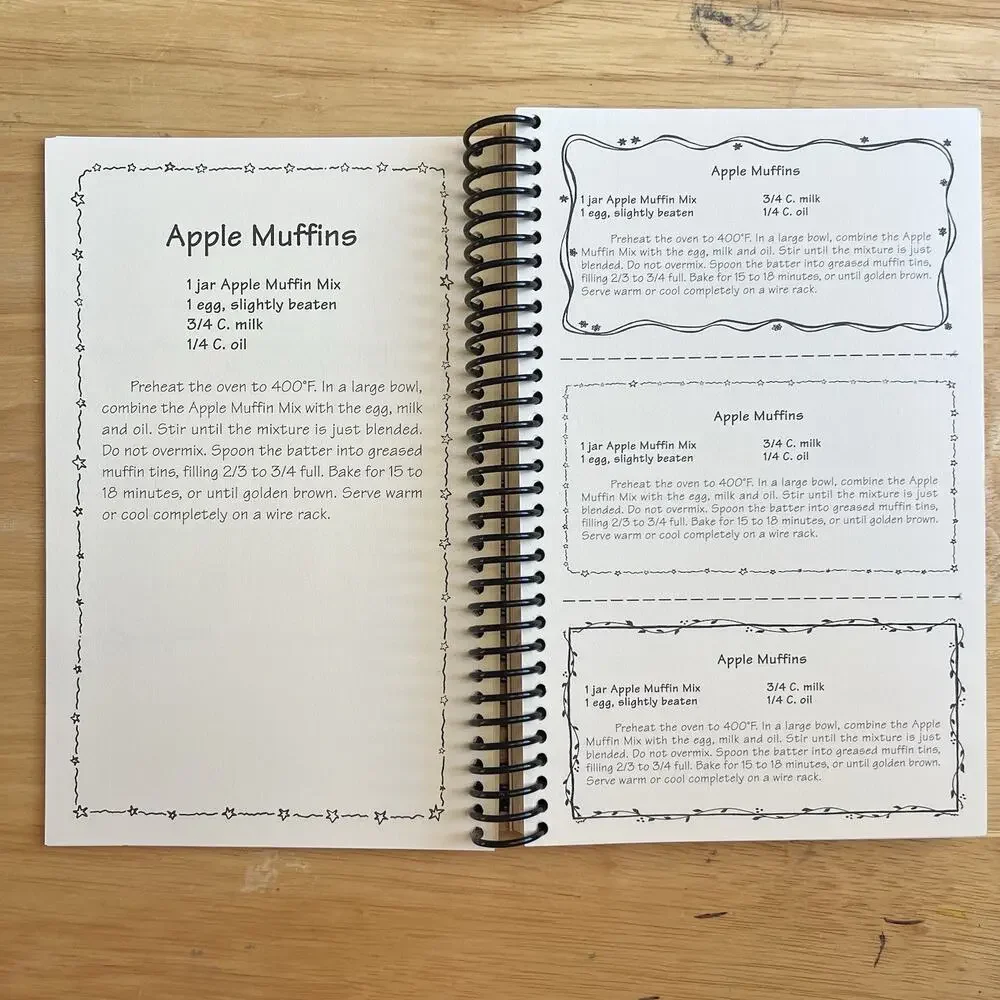 Apple Muffins
1 jar Apple Muffin Mix
1 egg, slightly beaten
3/4 C. milk
1/4 C. oil
Preheat the oven to 400°F. In a large bowl,
combine the Apple Muffin Mix with the egg, milk
and oil. Stir until the mixture is just blended.
Do not overmix. Spoon the batter into greased
muffin tins, filling 2/3 to 3/4 full. Bake for 15 to
18 minutes, or until golden brown. Serve warm
or cool completely on a wire rack.
Apple Muffins
1 jar Apple Muffin Mix 3/4 C. milk
1 egg, slightly beaten 1/4 C. oil
Preheat the oven to 400°F. In a large bowl, combine the Apple
Muffin Mix with the egg, milk and oil. Stir until the mixture is just
blended. Do not overmix. Spoon the batter into greased muffin tins,
filling 2/3 to 3/4 full. Bake for 15 to 18 minutes, or until golden brown.
Serve warm or cool completely on a wire rack.
Apple Muffins
1 jar Apple Muffin Mix 3/4 C. milk
1 egg, slightly beaten 1/4 C. oil
Preheat the oven to 400°F. In a large bowl, combine the Apple
Muffin Mix with the egg, milk and oil. Stir until the mixture is just
blended. Do not overmix. Spoon the batter into greased muffin tins,
filling 2/3 to 3/4 full. Bake for 15 to 18 minutes, or until golden brown.
Serve warm or cool completely on a wire rack.
Apple Muffins
1 jar Apple Muffin Mix 3/4 C. milk
1 egg, slightly beaten 1/4 C. oil
Preheat the oven to 400°F. In a large bowl, combine the Apple
Muffin Mix with the egg, milk and oil. Stir until the mixture is just
blended. Do not overmix. Spoon the batter into greased muffin tins,
filling 2/3 to 3/4 full. Bake for 15 to 18 minutes, or until golden brown.
Serve warm or cool completely on a wire rack.